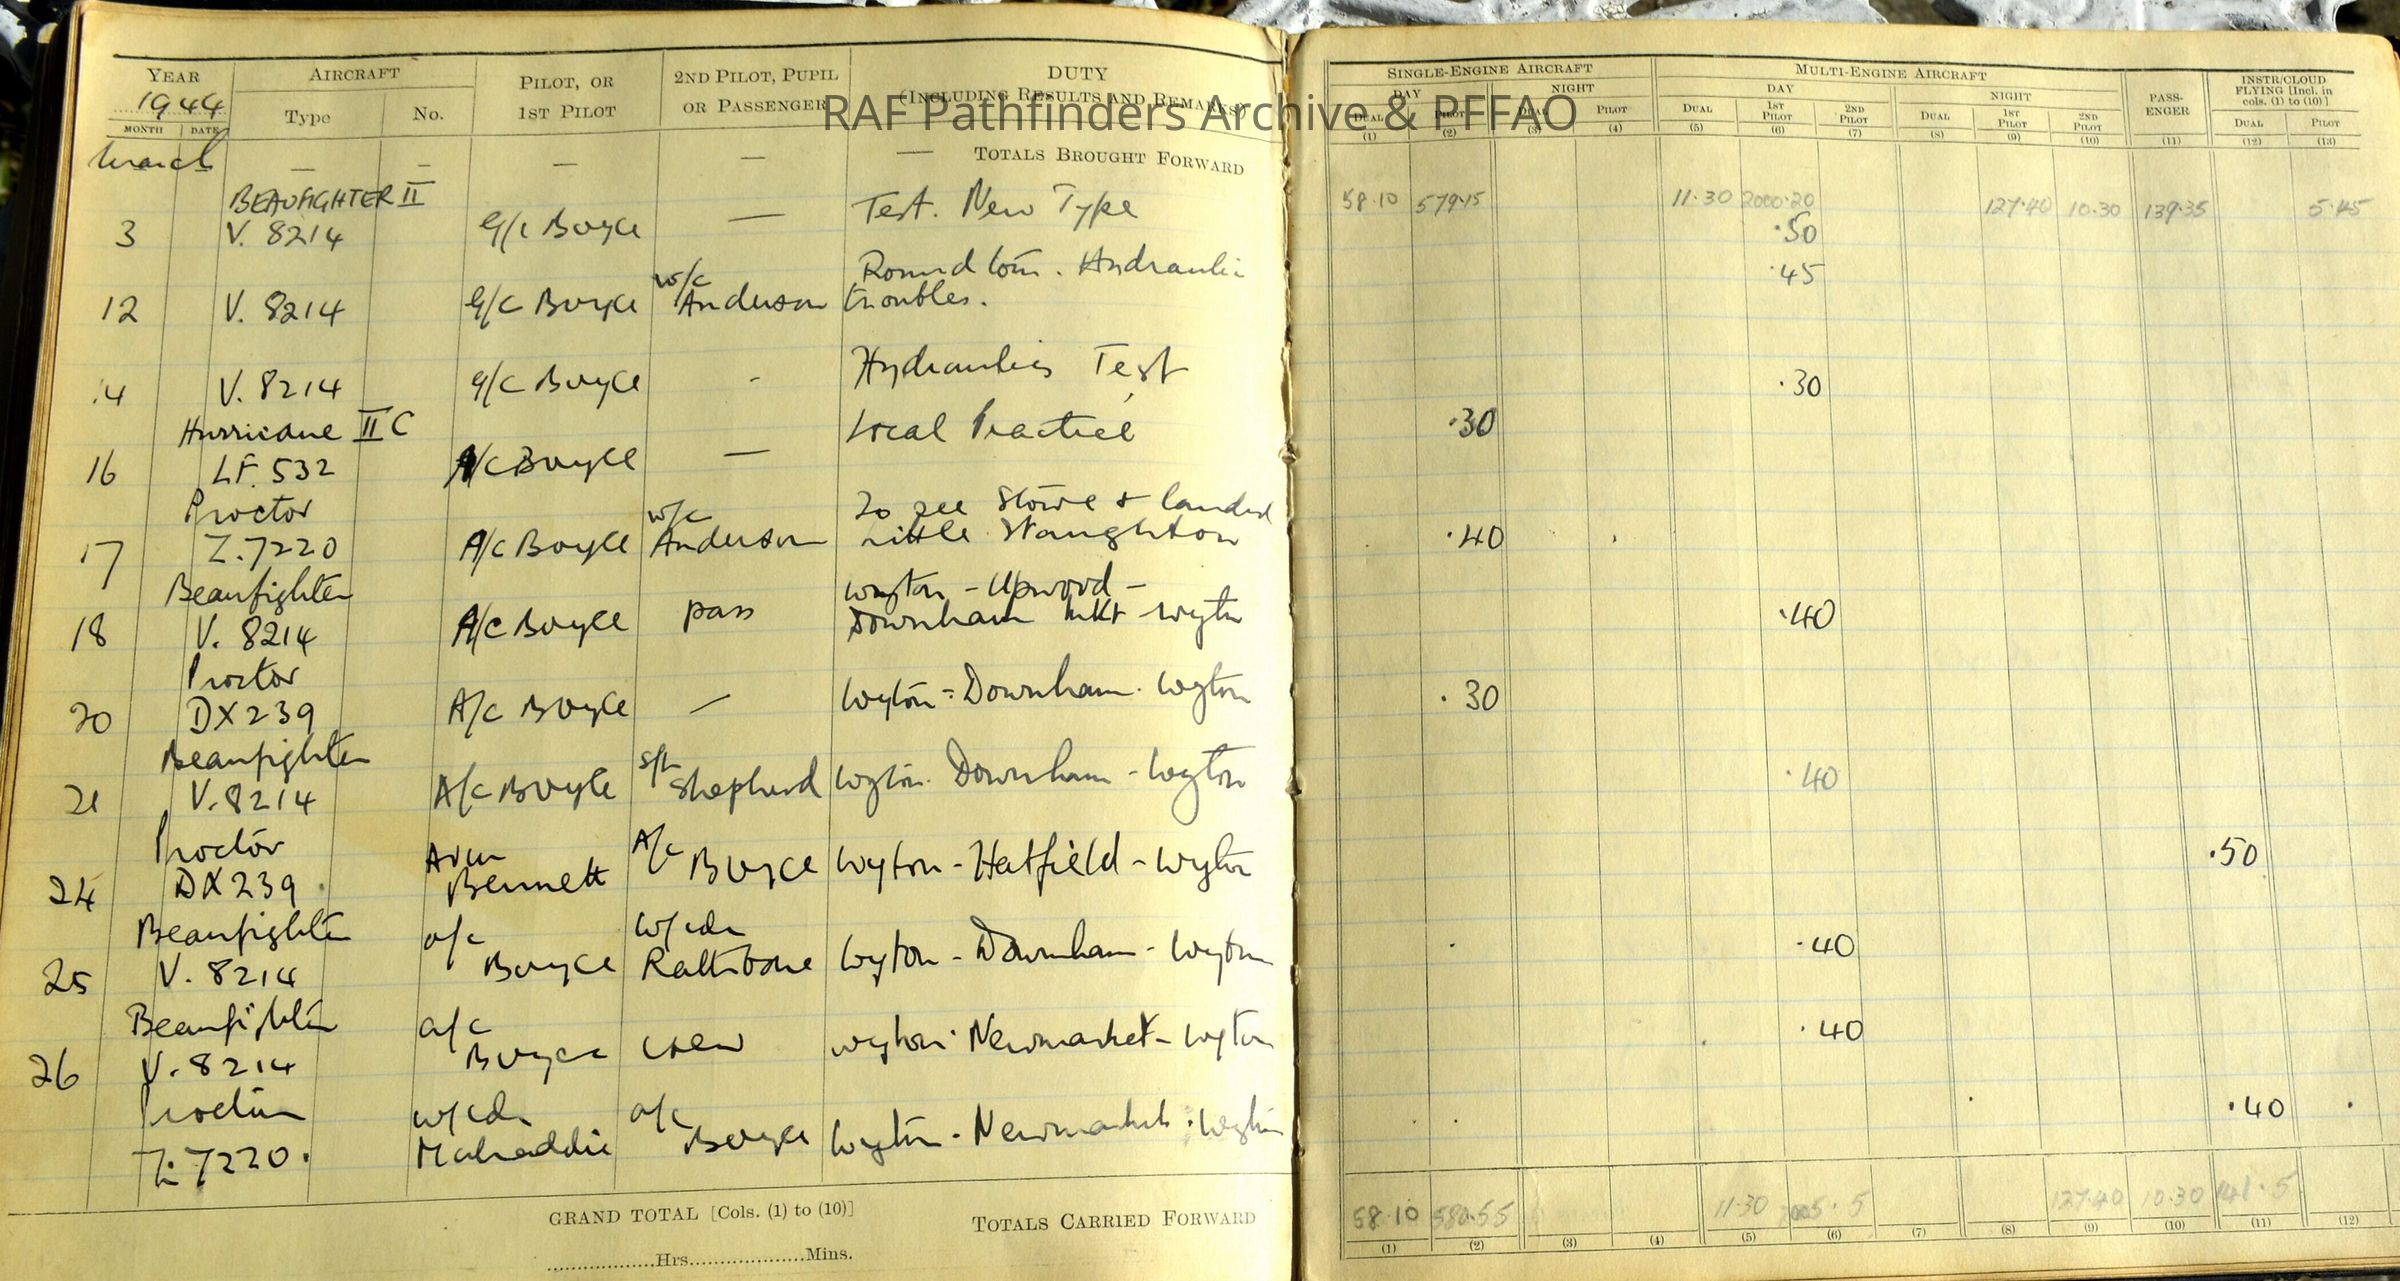 RAF Pathfinders Archive & PFFAO
YEAR AIRCRAFT PILOT, OR 1ST PILOT 2ND PILOT, PUPIL OR PASSENGER DUTY (INCLUDING RESULTS AND REMARKS)
1944 Type No.
MONTH DATE
SINGLE-ENGINE AIRCRAFT MULTI-ENGINE AIRCRAFT PASS-ENGER INSTR/CLOUD FLYING [Incl. in cols. (1) to (10)]
DAY NIGHT DAY NIGHT
DUAL PILOT DUAL PILOT DUAL 1ST PILOT 2ND PILOT DUAL 1ST PILOT 2ND PILOT DUAL PILOT
(1) (2) (3) (4) (5) (6) (7) (8) (9) (10) (11) (12) (13)
March — — — — — — TOTALS BROUGHT FORWARD
58.10 579.15 11.30 2000.20 127.40 10.30 139.35 5.45
BEAUFIGHTER II
3 V. 8214 G/C Boyce — Test. New Type .50
12 V. 8214 G/C Boyce W/C Anderson Round tour. Hydraulic troubles. .45
14 V. 8214 G/C Boyce - Hydraulics Test .30
Hurricane II C
16 LF. 532 A/C Boyce — Local Practice .30
Proctor
17 Z.7220 A/C Boyce W/C Anderson To see Stowe & landed Little Staughton .40
Beaufighter
18 V. 8214 A/C Boyce pass Wyton - Upwood - Downham Mkt - Wyton .40
Proctor
20 DX239 A/C Boyce — Wyton - Downham - Wyton .30
Beaufighter
21 V.8214 A/C Boyce S/L Shepherd Wyton - Downham - Wyton .40
Proctor
24 DX239 AVM Bennett A/C Boyce Wyton - Hatfield - Wyton .50
Beaufighter
25 V. 8214 a/c Boyce W/Cdr Rathbone Wyton - Downham - Wyton .40
Beaufighter
26 V. 8214 a/c Boyce crew Wyton - Newmarket - Wyton .40
Proctor
Z.7220. W/Cdr Mahaddie a/c Boyce Wyton - Newmarket - Wyton .40
GRAND TOTAL [Cols. (1) to (10)] TOTALS CARRIED FORWARD
58.10 580.55 11.30 2005.5 127.40 10.30 141.5
......Hrs......Mins.
(1) (2) (3) (4) (5) (6) (7) (8) (9) (10) (11) (12)